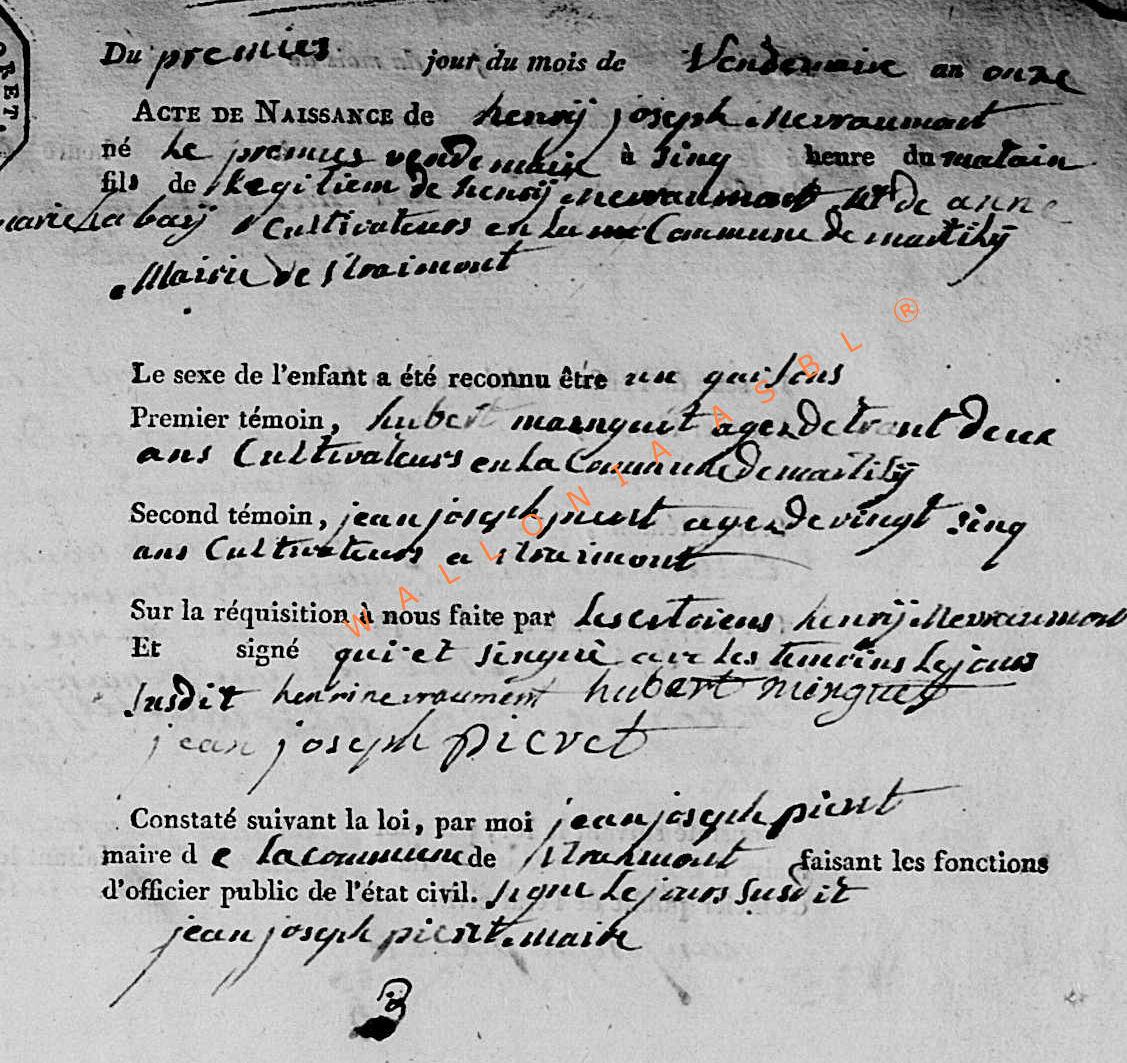 Du premies jour du mois de Vendemaire an onze
ACTE DE NAISSANCE de henrij joseph Nevraumont
né Le premies vendemaire à sinq heure du matain
fils de Legitiem de henrij Nevraumont et de anne
marie Labaij Cultivateurs en la Commune de martilij
Mairie de straimont
Le sexe de l'enfant a été reconnu être un garsons
Premier témoin, hubert mainguet agez de trent deux
ans Cultivateurs en La Commune De martilij
Second témoin, jean joseph pieret agez de vingt sinq
ans Cultivateurs a straimont
Sur la réquisition à nous faite par Les citoiens henrij Nevraumont
Et signé qui et singné avec les temoins Le jours
susdit henri nevraumont hubert minguet
jean joseph pieret
Constaté suivant la loi, par moi jean joseph pieret
maire d e La commune de straimont faisant les fonctions
d'officier public de l'état civil. signe Le jours susdit
jean joseph pieret maire
WALLONIA ASBL ®